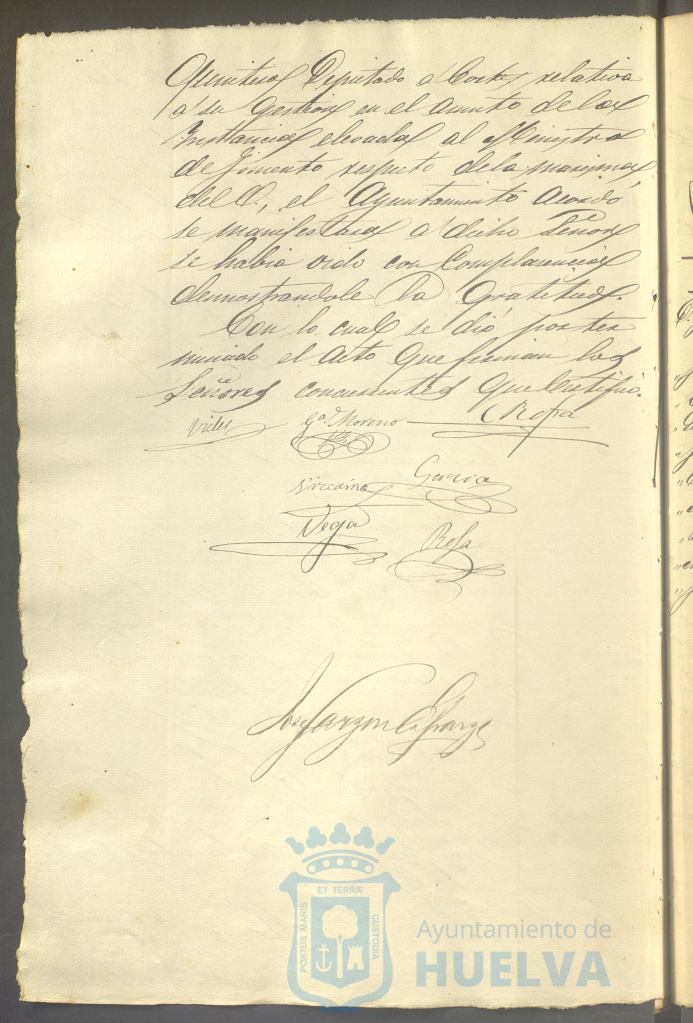 Quintero Diputado a Cortes, relativa
a su gestion en el asunto de las
Instancias elevadas al Ministro
de fomento respecto de la marisma
del O., el Ayuntamiento acordó
se manifestara a dicho Señor
se habia oido con Complacencia
demostrandole la Gratitud.
Con lo cual se dió por ter
minado el acto que firman los
Señores concurrentes que Certifico.
Vides Ga. Moreno Rofa
Vizcaino Garcia
Vega Rofa
Jose Garzon
ET TERRÆ
PORTUS MARIS
CUSTODIA
Ayuntamiento de
HUELVA